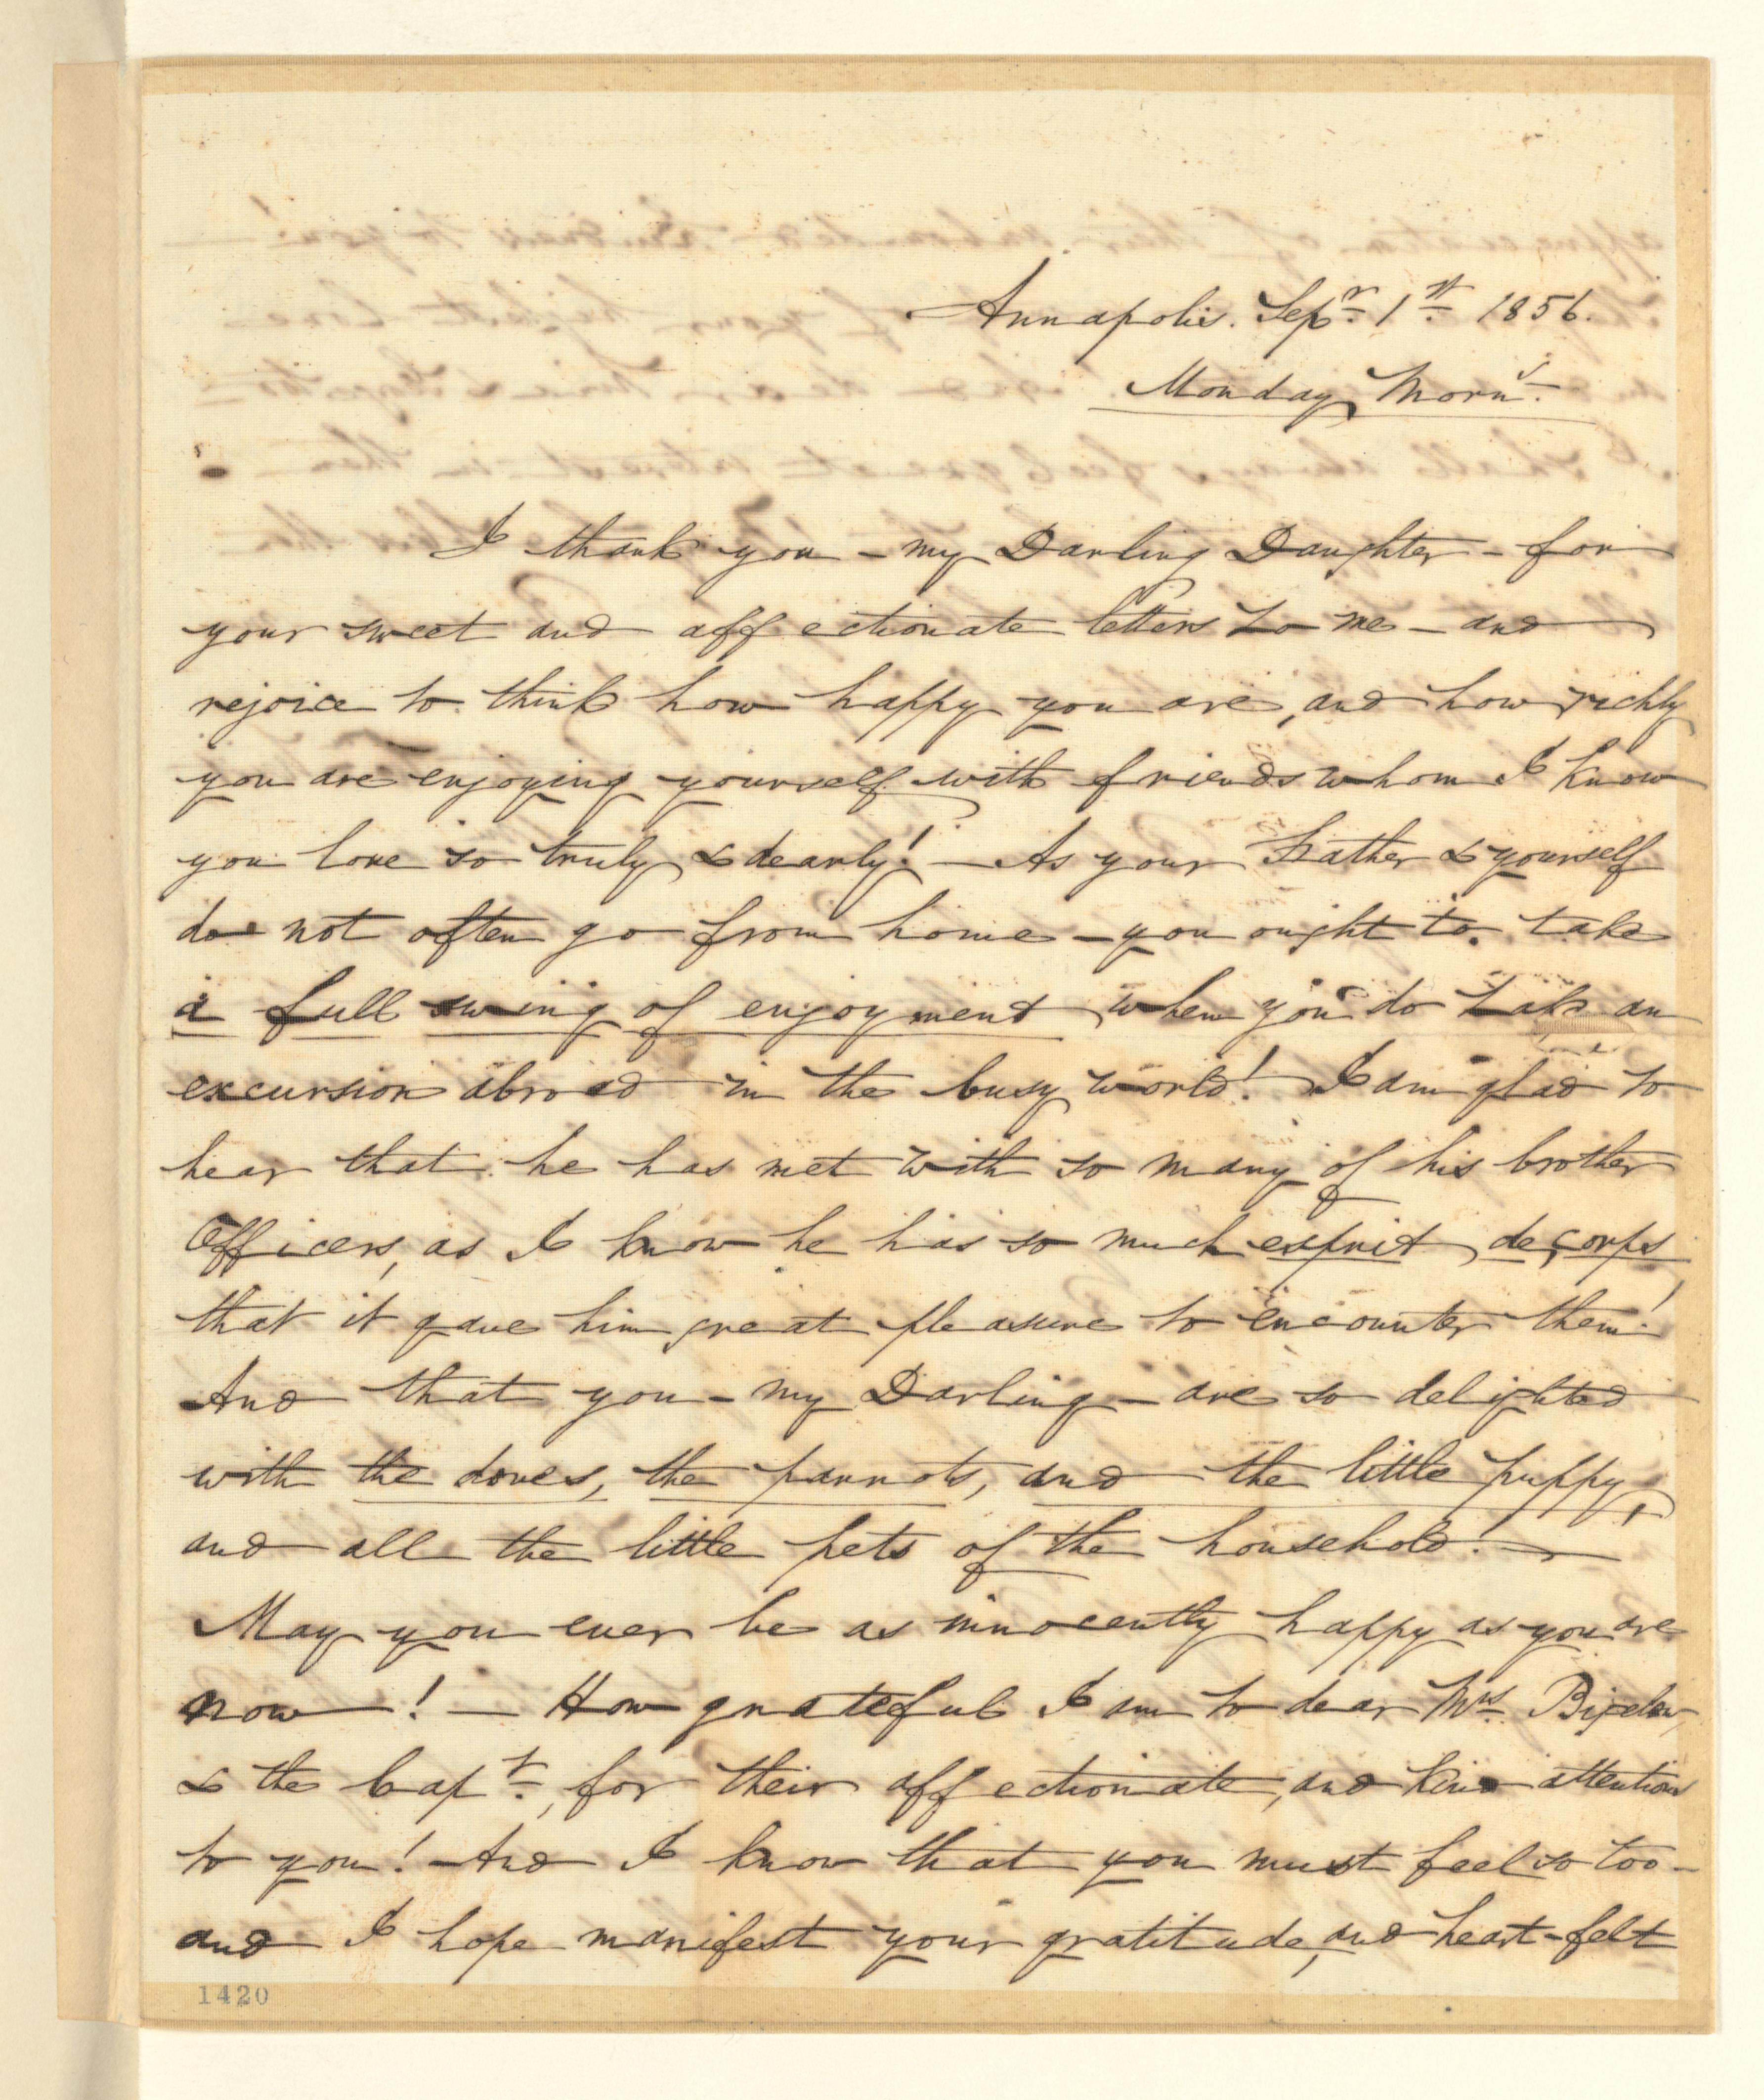 Annapolis. Sepr. 1st. 1856.
Monday Morng.
I thank you - my Darling Daughter - for
your sweet and affectionate letters to me - and
rejoice to think how happy you are, and how richly
you are enjoying yourself with friends whom I know
you love so truly & dearly! - As your Father & yourself
do not often go from home - you ought to take
a full swing of enjoyment when you do take an
excursion abroad in the busy world! I am glad to
hear that he has met with so many of his brother
Officers, as I know he has so much esprit de corps
that it gave him great pleasure to encounter them!
And that you - my Darling - are so delighted
with the doves, the parrots, and the little puppy,
and all the little pets of the household. -
May you ever be as innocently happy as you are
now! - How grateful I am to dear Mrs. Bigelow,
& the Capt., for their affectionate, and kind attentions
to you! - And I know that you must feel so too -
and I hope manifest your gratitude, and heart-felt
1420